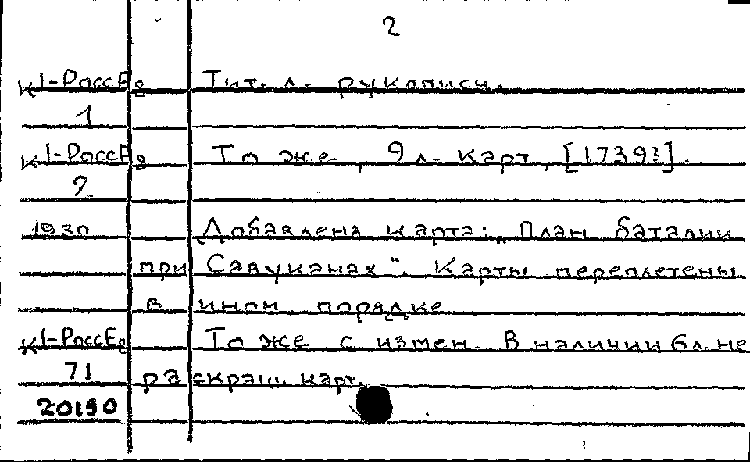 2
К1-РоссЕ2 Тит. л. рукописи.
1
К1-РоссЕ2 То же, 9 л. карт, [1739?].
2
1930 Добавлена карта: „План баталии
при Савучанах“. Карты переплетены
в ином порядке
К1-РоссЕ2 То же с измен. В наличии 6 л. не
71 раскраш. карт.
20190